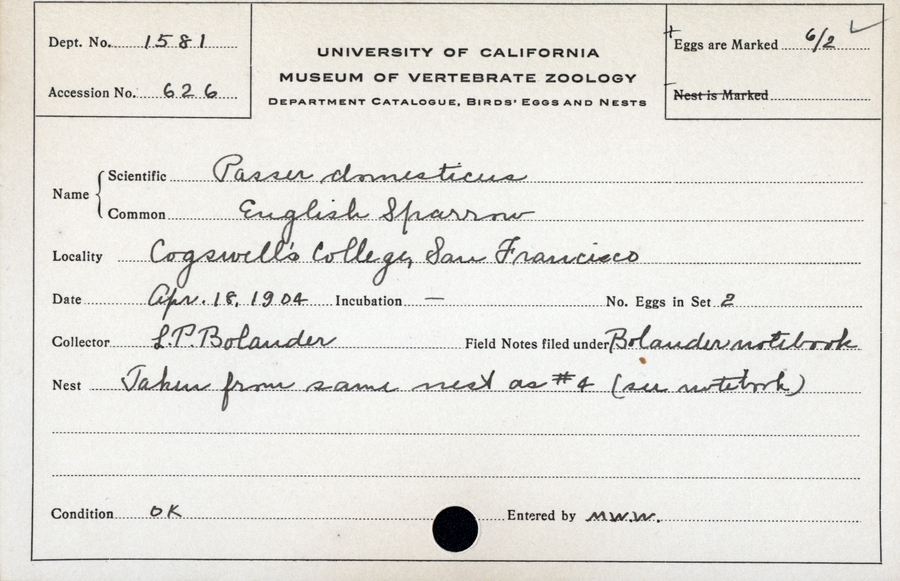 Dept. No. 1581
Accession No. 626
UNIVERSITY OF CALIFORNIA
MUSEUM OF VERTEBRATE ZOOLOGY
DEPARTMENT CATALOGUE, BIRDS' EGGS AND NESTS
Eggs are Marked 6/2 ✓
Nest is Marked
Name { Scientific Passer domesticus
Common English Sparrow
Locality Cogswell's College, San Francisco
Date Apr. 18, 1904 Incubation — No. Eggs in Set 2
Collector L.P. Bolander Field Notes filed under Bolander notebook
Nest Taken from same nest as #4 (see notebook)
Condition OK Entered by M.W.W.